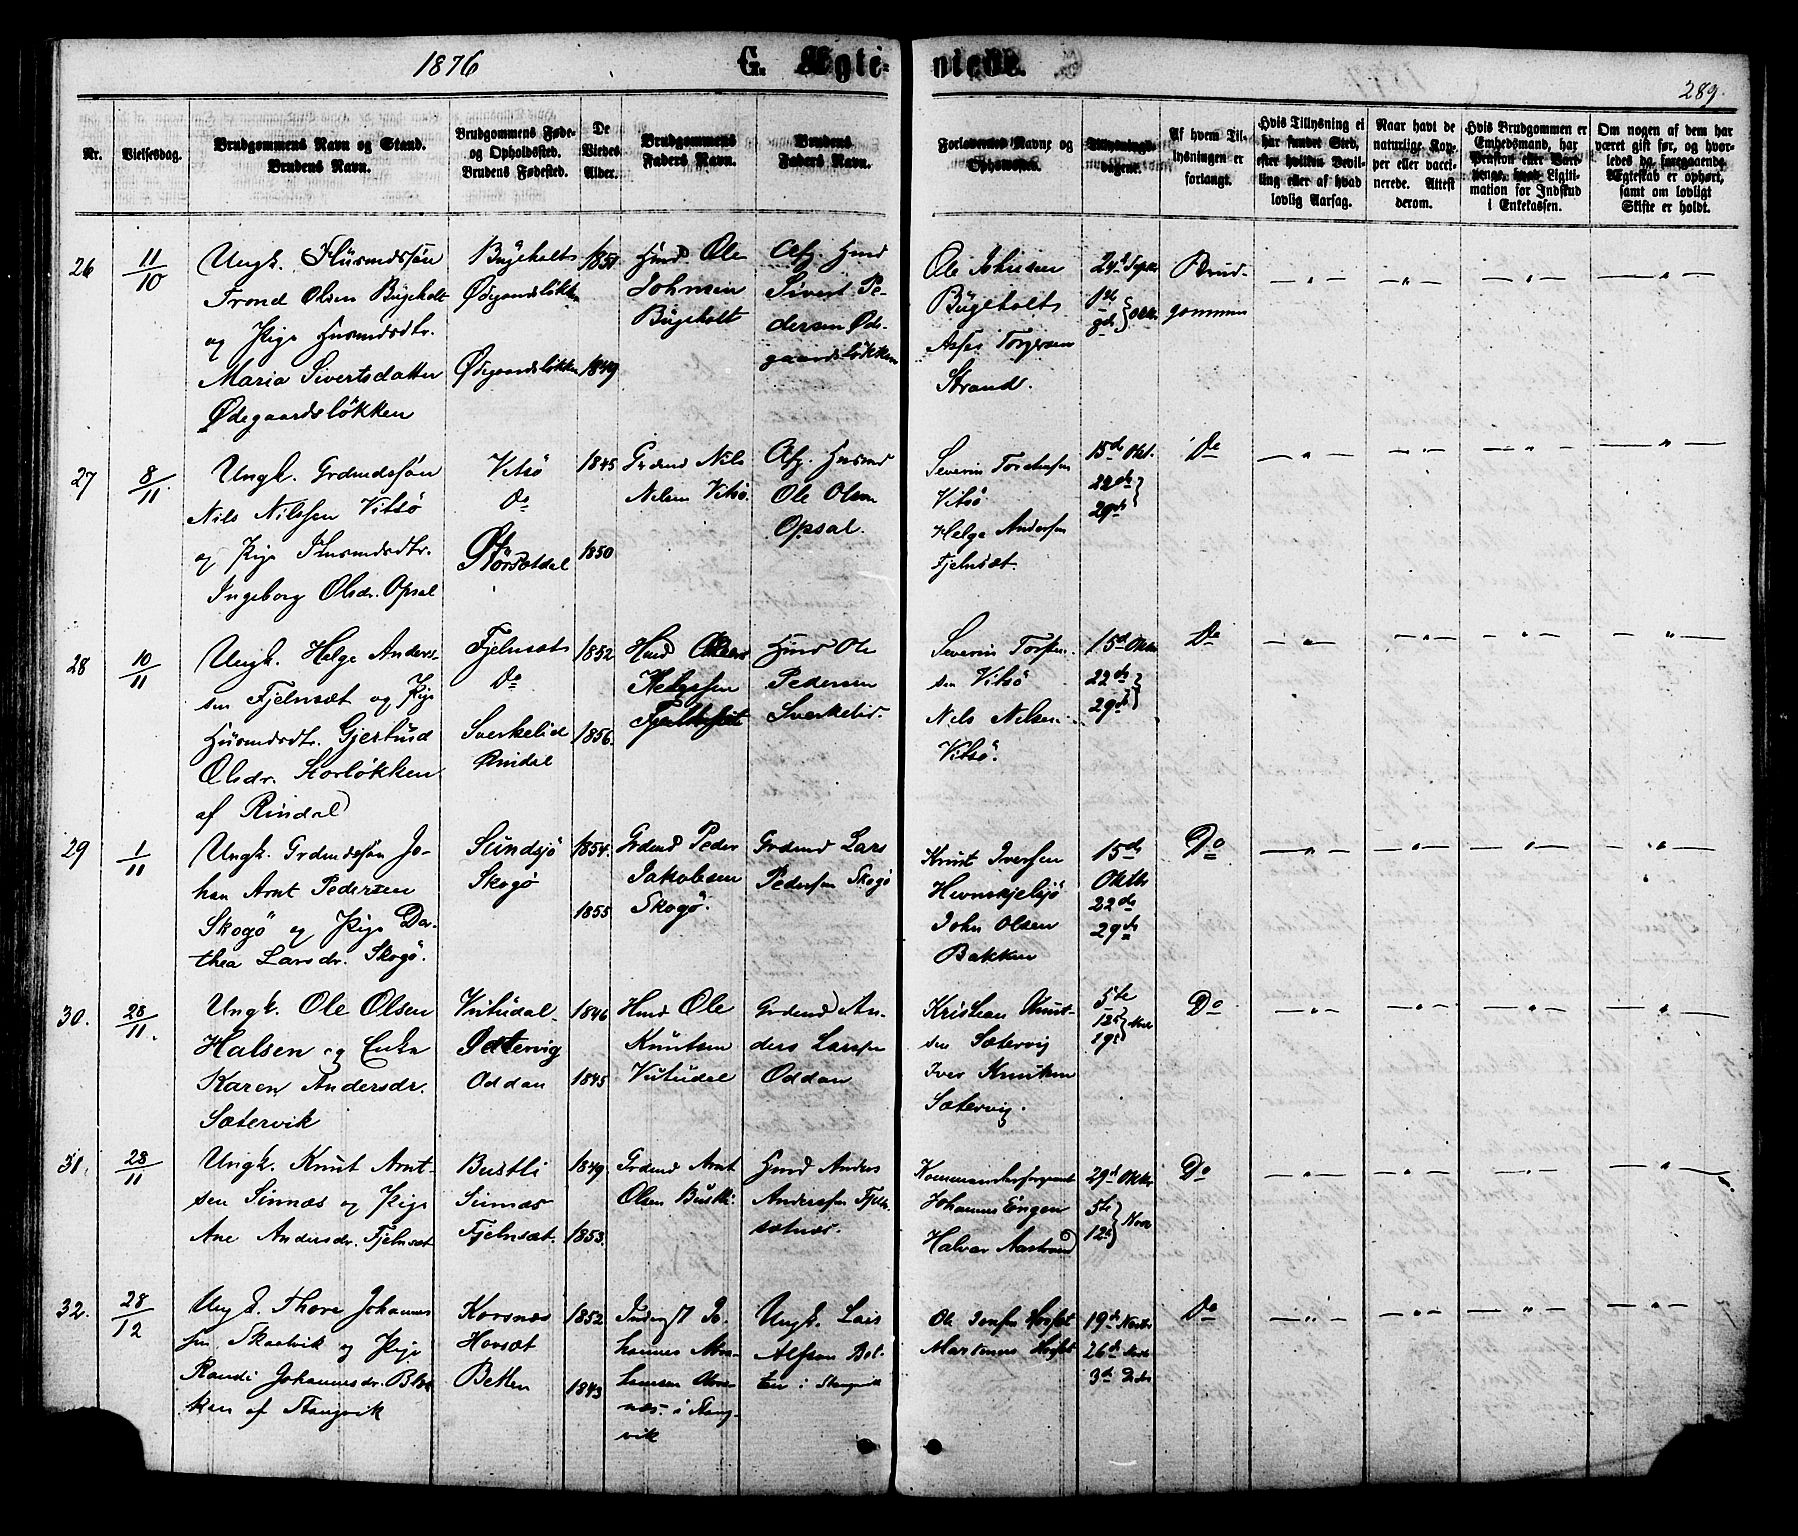 1876
G. Ægte-
viede.
289.
Nr.
Vielsesdag.
Brudgommens Navn og Stand.
Brudens Navn.
Brudgommens Føde-
og Opholdssted.
Brudens Fødested.
De
Viedes
Alder.
Brudgommens
Faders Navn.
Brudens
Faders Navn.
Forlovernes Navne og
Opholdssted.
Tillysnings-
dagene.
Af hvem Til-
lysningen er
forlangt.
Hvis Tillysning ei
har fundet Sted,
efter hvilken Bevil-
ling eller af hvad
lovlig Aarsag.
Naar havt de
naturlige Kop-
per eller vacci-
nerede. Attest
derom.
Hvis Brudgommen er
Embedsmand, har
Pension eller
Ligiti-
mation for Indskud
i Enkekassen.
Om nogen af dem har
været gift før, og hvor-
ledes da foregaaende
Ægteskab er ophørt,
samt om lovligt
Skifte er holdt.
26
11/10
Ungk. Husmdssøn
Trond Olsen Bügeholt
og Pige Husmdsdtr.
Maria Sivertsdatter
Ødegaardsløkken
Bügeholts
Ødegaardsløkken
Ødegaardsløkken
1851
1849
Husmd Ole
Johnsen
Bügeholt
Afg. Husmd
Sivert Pe-
dersen Øde-
gaardsløkken
Ole Johnsen
Bügeholts
Torgersen
Strand.
24de Septr
1ste
8de } Oktr.
Brud-
gommen
27
8/11.
Ungk. Grdmdssøn
Nils Nilssen Vitsø
og Pige Husmdsdtr.
Ingeborg Olsdr. Opsal
Vitsø
Do
Størsætdal
1845
1850
Grdmd Nils
Nilsen Vitsø.
Afg. Husmd
Ole Olsen
Opsal.
Severin Torstensen
Vitsø
Helge Andersen
Fjelnsæt.
15de Okt.
22de
29de }
Do
28
10/11
Ungk. Helge Anders-
sen Fjelnsæt og Pige
Husmdsdtr. Gjertrud
Olsdr. Storløkken
af Rindal
Fjelnsæt
Do
Sverkelid
Rindal
1852
1856.
Husmd
Helgesen
Husmd Ole
Pedersen
Sverkelid.
Severin Torsten-
sen Vitsø
Nils Nilsen
Vitsø.
15de Oktr
22de
29de }
Do
29
1/11
Ungk. Grdmdssøn Jo-
han Arnt Pedersen
Skogø og Pige Do-
thea Larsdr. Skogø.
Sundsjø
Skogø
1854.
1855.
Grdmd Peder
Jakobsen
Skogø.
Grdmd Lars
Pedersen Skogø
Knut Iversen
Hevnskjelsjø
John Olsen
Bakken
15de
Oktbr
22de
29de
Do
30.
28/11.
Ungk. Ole Olsen
Halsen og Enke
Karen Andersdr.
Sætervik
Vutudal
Sætervig
Oddan
1846
1845
Husmd Ole
Knutsen
Vutudal
Grdmd An-
ders Larssen
Oddan
Kristian Knut-
sen Sætervig
Iver Knutsen
Sætervig.
5te
12te
19de } Nov
Do
31.
28/11
Ungk. Knut Arnt-
sen Sinnæs og Pige
Ane Andersdr. Fjelnsæt
Bustli
Sinnæs
Fjelnsæt.
1849
1853.
Grdmd Arnt
Olsen Bustli
Husmd Anders
Anderssen Fjeln-
sætnes.
Kommandersergeant
Johannes Engen
Halvar Aastrand
29de Oktbr
5te
12te } Novr
Do
32.
28/12
Ungk. Thore Johannes
sen Skaalvik og Pige
Randi Johannesdr. Bet-
ken af Stangvik
Korsnæs
Horsæt
Betten
1852
1843
Inderst Jo-
hannes
næs i Stang-
vik
Ungk. Lars
Alfson Bet-
ten i Stangvik
Ole Jonsen
Martinus
19de Novbr
26de Novbr
3de Decbr
Do